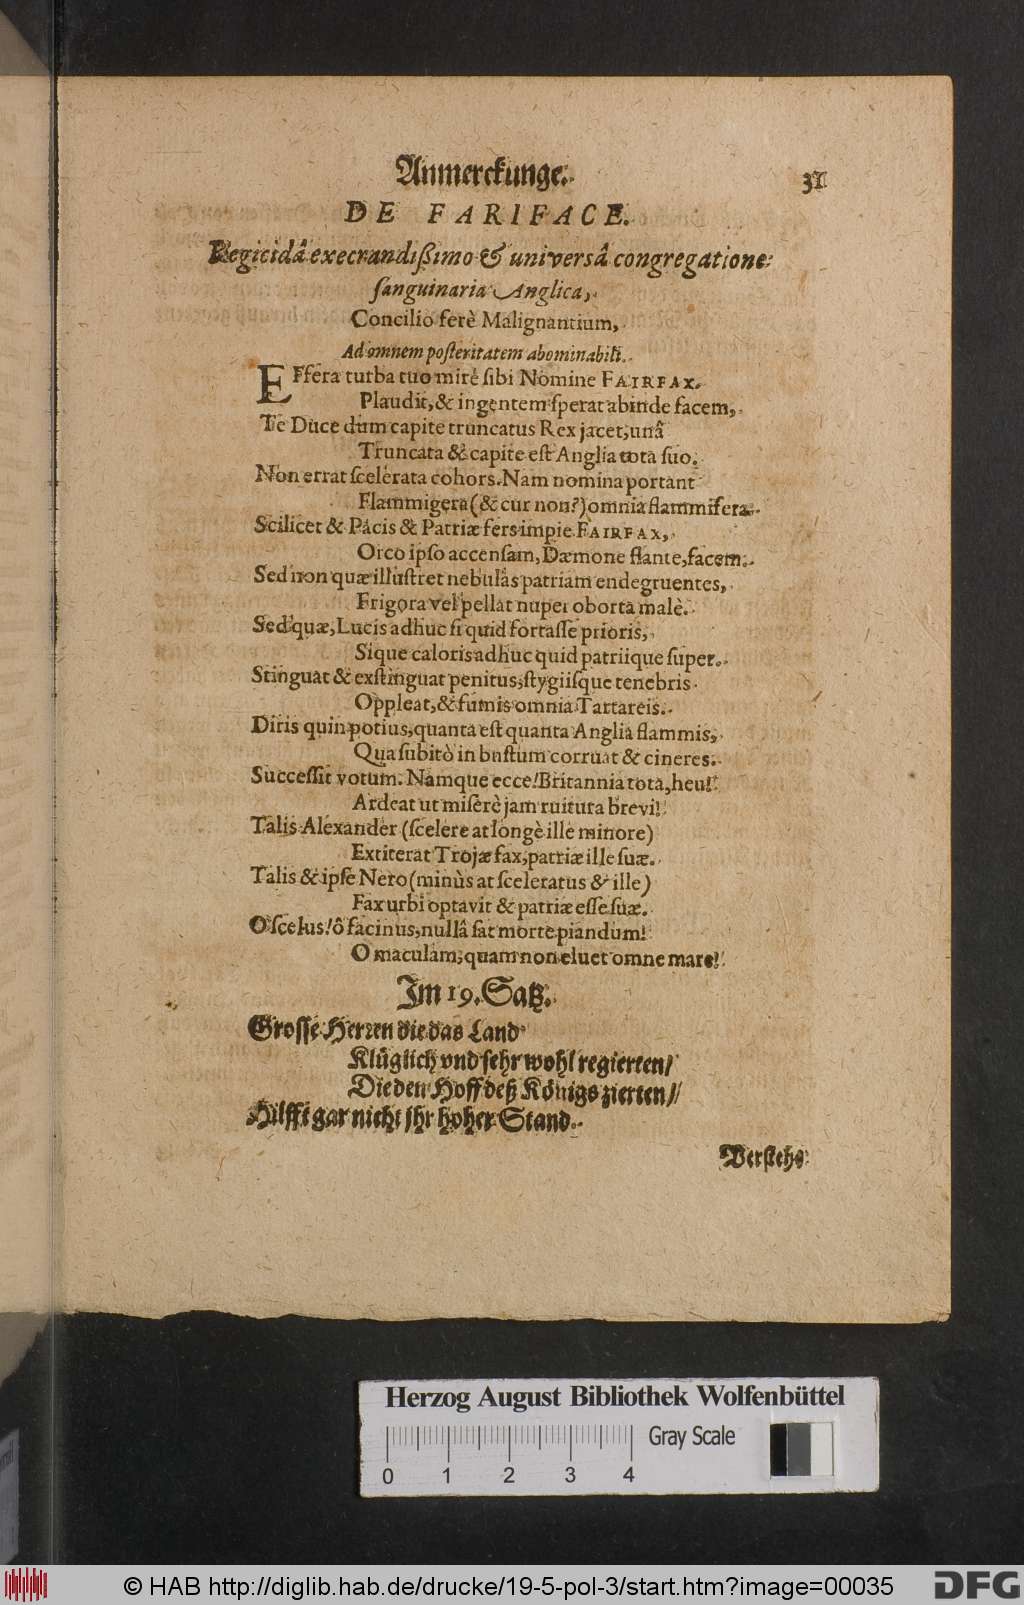 Anmerckunge. 31
DE FARIFACE.
Regicidâ execrandißimo & universâ congregatione
sanguinaria Anglica,
Concilio ferè Malignantium,
Ad omnem posteritatem abominabili.
EFfera turba tuo mirè sibi Nomine FAIRFAX.
Plaudit, & ingentem sperat abinde facem,
Te Duce dum capite truncatus Rex jacet, unâ
Truncata & capite est Anglia tota suo.
Non errat scelerata cohors. Nam nomina portant
Flammigera (& cur non?) omnia flammifera.
Scilicet & Pacis & Patriæ fers impie FAIRFAX,
Orco ipso accensam, Dæmone flante, facem.
Sed non quæ illustret nebulas patriam endegruentes,
Frigora vel pellat nuper oborta malè.
Sed quæ, Lucis adhuc si quid fortasse prioris,
Sique caloris adhuc quid patriique super.
Stinguat & exstinguat penitus, stygiisque tenebris
Oppleat, & fumis omnia Tartareis.
Diris quin potius, quanta est quanta Anglia flammis,
Qua subitò in bustum corruat & cineres.
Successit votum. Namque ecce! Britannia tota, heu!
Ardeat ut miserè jam ruitura brevi!
Talis Alexander (scelere at longè ille minore)
Extiterat Trojæ fax, patriæ ille suæ.
Talis & ipse Nero (minùs at sceleratus & ille)
Fax urbi optavit & patriæ esse suæ.
O scelus! ô facinus, nullâ sat morte piandum!
O maculam, quam non eluet omne mare!
Im 19. Satz.
Grosse Herren die das Land
Klüglich vnd sehr wohl regierten/
Die den Hoff deß Königs zierten/
Hilfft gar nicht ihr hoher Stand.
Verstehs
Herzog August Bibliothek Wolfenbüttel
Gray Scale
0 1 2 3 4
© HAB http://diglib.hab.de/drucke/19-5-pol-3/start.htm?image=00035
DFG